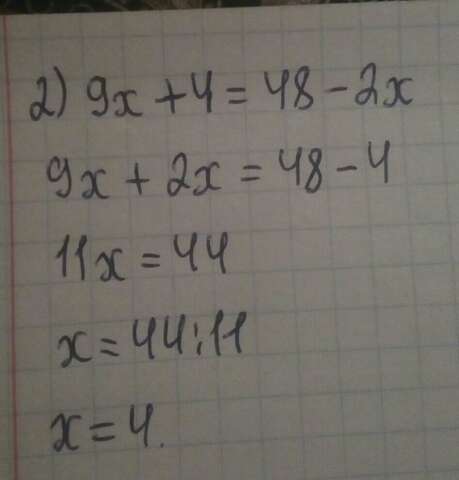 2) 9x + 4 = 48 - 2x
9x + 2x = 48 - 4
11x = 44
x = 44:11
x = 4.